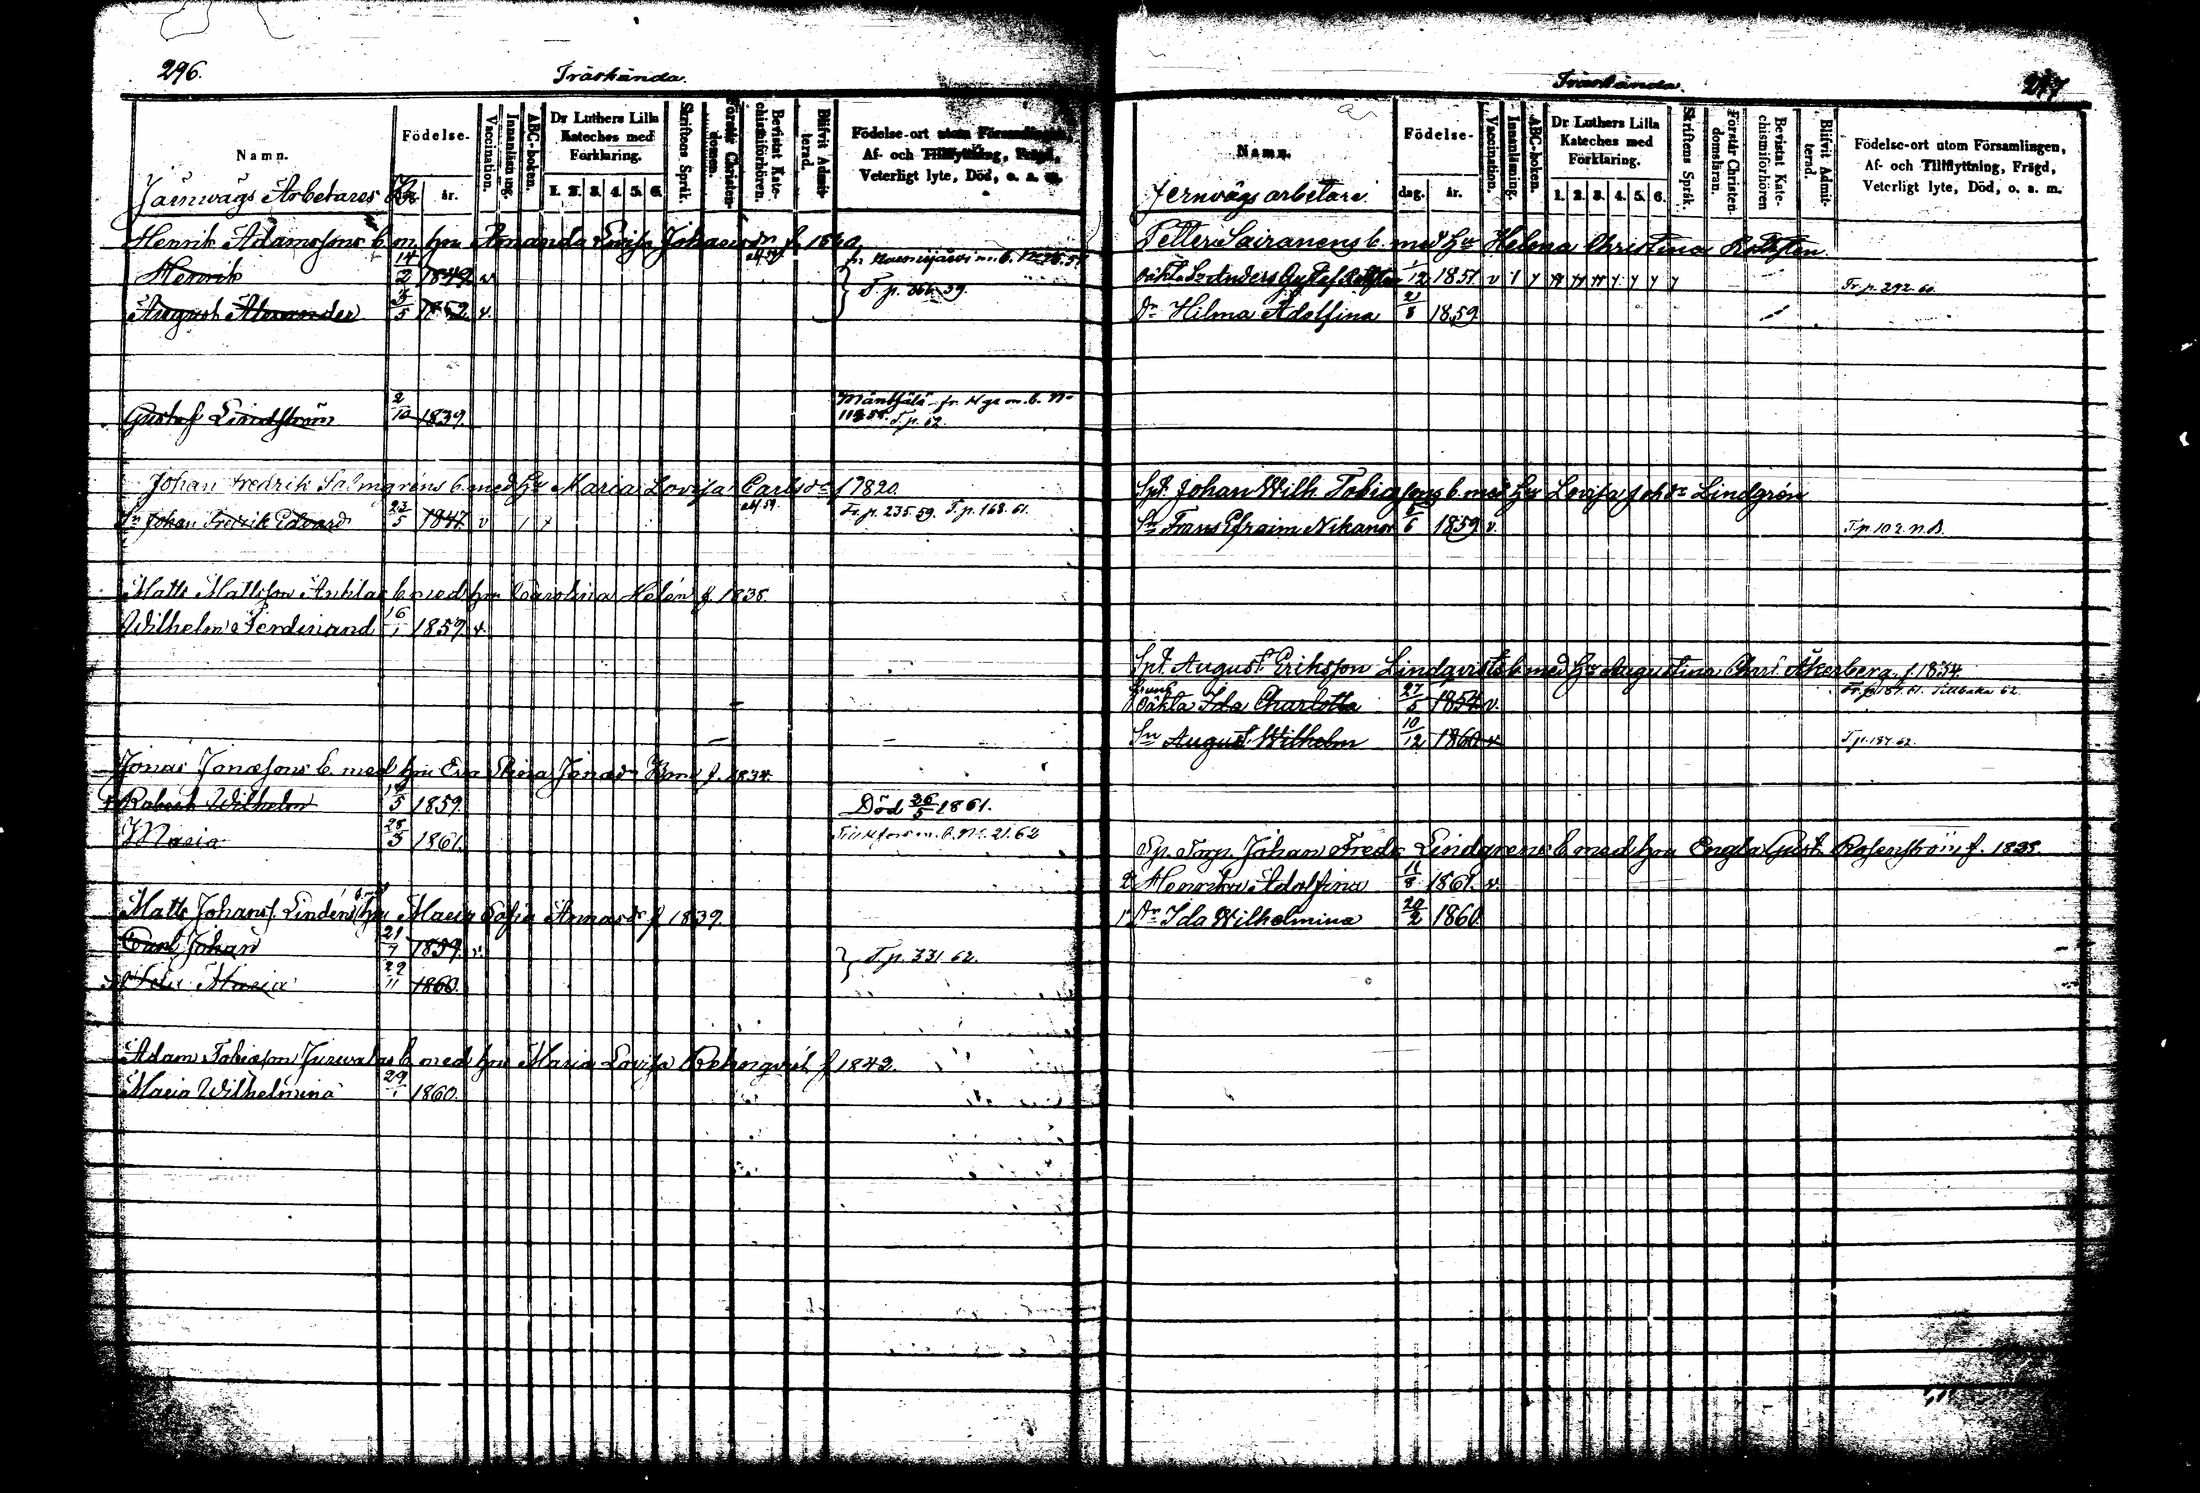 296.
Träskända.
Namn.
Födelse-
år.
Vaccination.
Innanläsning.
ABC-boken.
Dr Luthers Lilla Kateches med Förklaring.
1. 2. 3. 4. 5. 6.
Skriftens Språk.
Förstår Christendomen.
Bevistat Katechismiförhören.
Blifvit Admitterad.
Födelse-ort utom Församlingen,
Af- och Tillflyttning, Frägd,
Veterligt lyte, Död, o. a. m.
Järnvägs Arbetares
Henrik Adamssons b. m. hu Amanda Lovisa Johansdr f. 1820
Henrik 14/2 1849 v
August Alexander 3/5 1852 v. } T. p. 366. 59.
Gustaf Lindström 2/10 1839.
Mäntsälä fr. Hga m. b. No
113 58. T. p. 62.
Johan Fredrik Salmgréns b. med Hu Maria Lovisa Carlsdr 1820.
Sn Johan Fredrik Edvard 23/5 1847 v Fr. p. 235. 59. T. p. 168. 61.
Matts Mattsson Anklas b. med hu Carolina Helén f. 1838.
Wilhelm Ferdinand 16/1 1859 v.
Jonas Jonassons b. med hu Eva Stina Jonasdr f. 1834.
Robert Wilhelm 5 1859. Död 26/5 1861.
Maria 28/3 1861. m. b. No. 21. 62
Matts Johanss. Lindéns b. med hu Maria Sofia Annasdr f 1839.
Carl Johan 21/7 1859. v. } T. p. 331. 62.
Maria 29/11 1860.
Adam Tobiasson Jurvalas b. med hu Maria Lovisa f 1842.
Maria Wilhelmina 29/1 1860.
Träskända.
297
Namn.
Födelse-
dag. år.
Vaccination.
Innanläsning.
ABC-boken.
Dr Luthers Lilla Kateches med Förklaring.
1. 2. 3. 4. 5. 6.
Skriftens Språk.
Förstår Christendomsläran.
Bevistat Katechismiförhören
Blifvit Admitterad.
Födelse-ort utom Församlingen,
Af- och Tillflyttning, Frägd,
Veterligt lyte, Död, o. a. m.
Jernvägsarbetare.
Petter Sairanens b. med Hu Helena Christina
Oäkta Sn Anders Gustaf 1/12 1851 v Fr. p. 292. 60.
Dr Hilma Adolfina 21/8 1859.
Spt. Johan Wilh. Tobiassons b. med Hu Lovisa Johdr Lindgrén
Sn Frans Efraim Nikanor 5/6 1859 v. T. p. 102. n. B.
Spt. August Eriksson Lindqvists b. med Hu Augustina Charl. Åkerberg. f. 1834
Oäkta Ida Charlotta 27/5 1854 v. Fr. p. 187. 61. Tillbaka 62.
Sn August Wilhelm 10/12 1860 v T. p. 187. 62.
Sp. Torp. Johan Fredr. Lindgrens b. med hu Engla Gust. Rosenström f. 1838.
2 Henrika Adolfina 11/8 1861. v.
1 Dr Ida Wilhelmina 20/2 1860